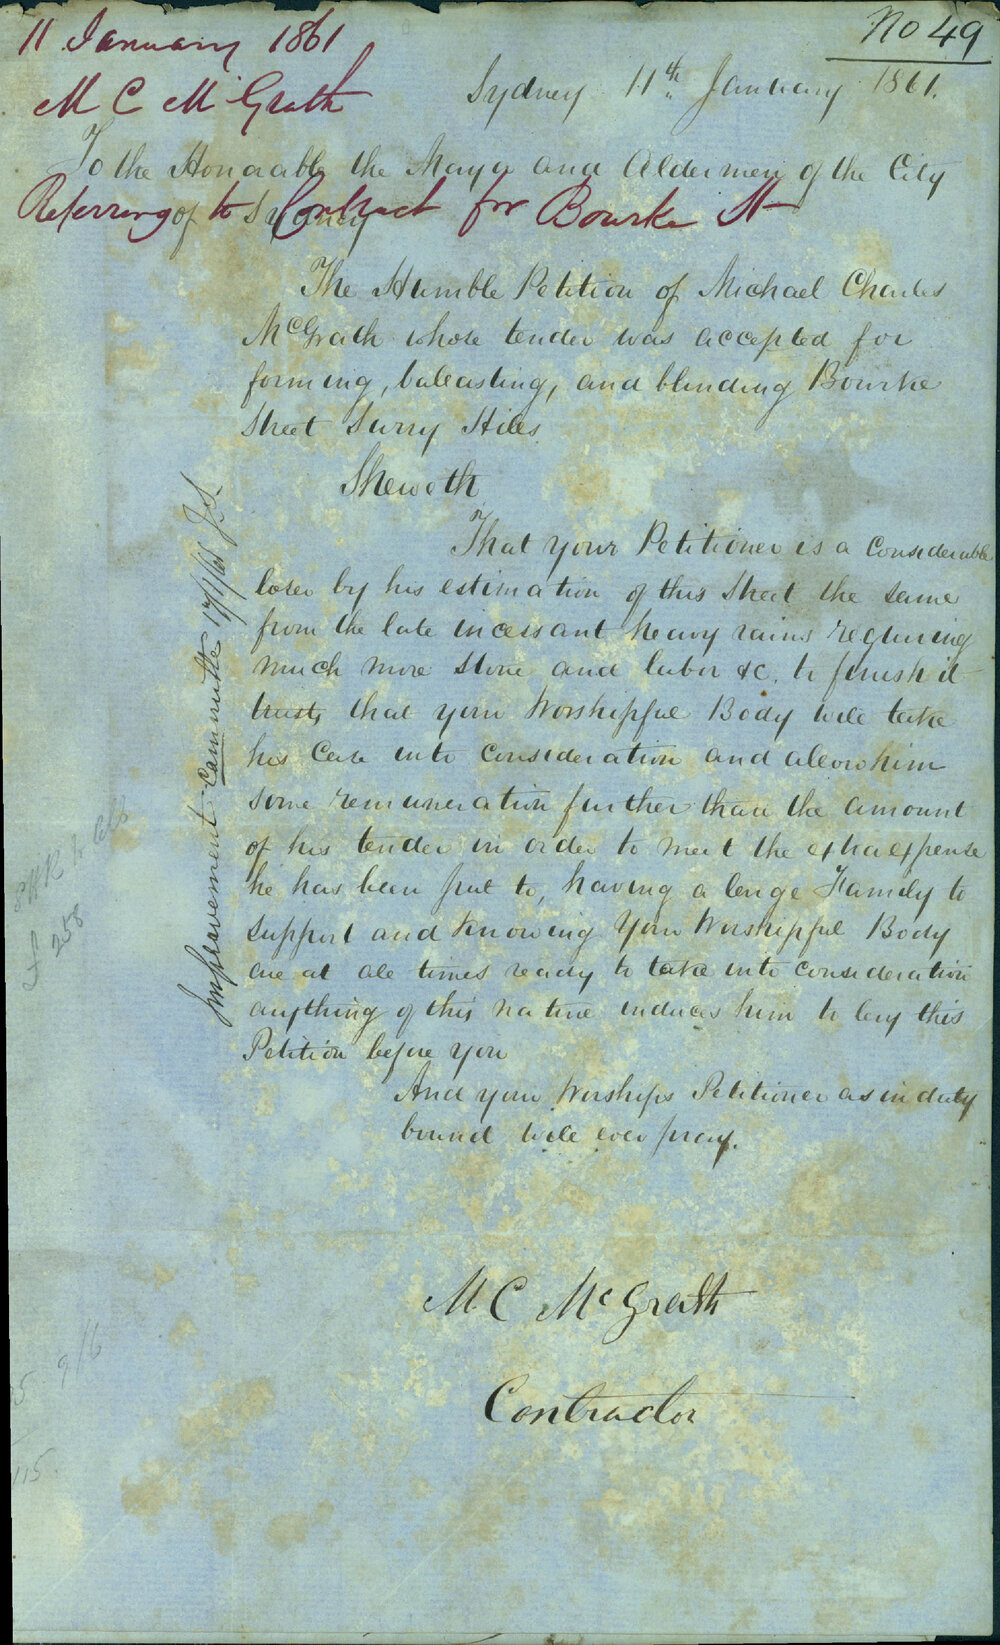 11 January 1861
No 49
M C McGrath
Sydney 11th January 1861.
To the Honorable the Mayor and Aldermen of the City
of Sydney
Referring to Contract for Bourke St
The Humble Petition of Michael Charles
McGrath whose tender was accepted for
forming, balasting, and blinding Bourke
Street Surry Hills
Sheweth
That your Petitioner is a Considerable
loser by his estimation of this Street the same
from the late incessant heavy rains requiring
much more Stone and labor &c. to finish it
trusts that your Worshipful Body will take
his Case into Consideration and allow him
some remuneration further than the amount
of his tender in order to meet the extra expense
he has been put to, having a large Family to
support and Knowing Your Worshipful Body
are at all times ready to take into consideration
anything of this nature induces him to lay this
Petition before you
And your Worships Petitioner as in duty
bound will ever pray.
M. C McGrath
Contractor
Improvement Committee 17/1/61 J.S.
258
9/6
115